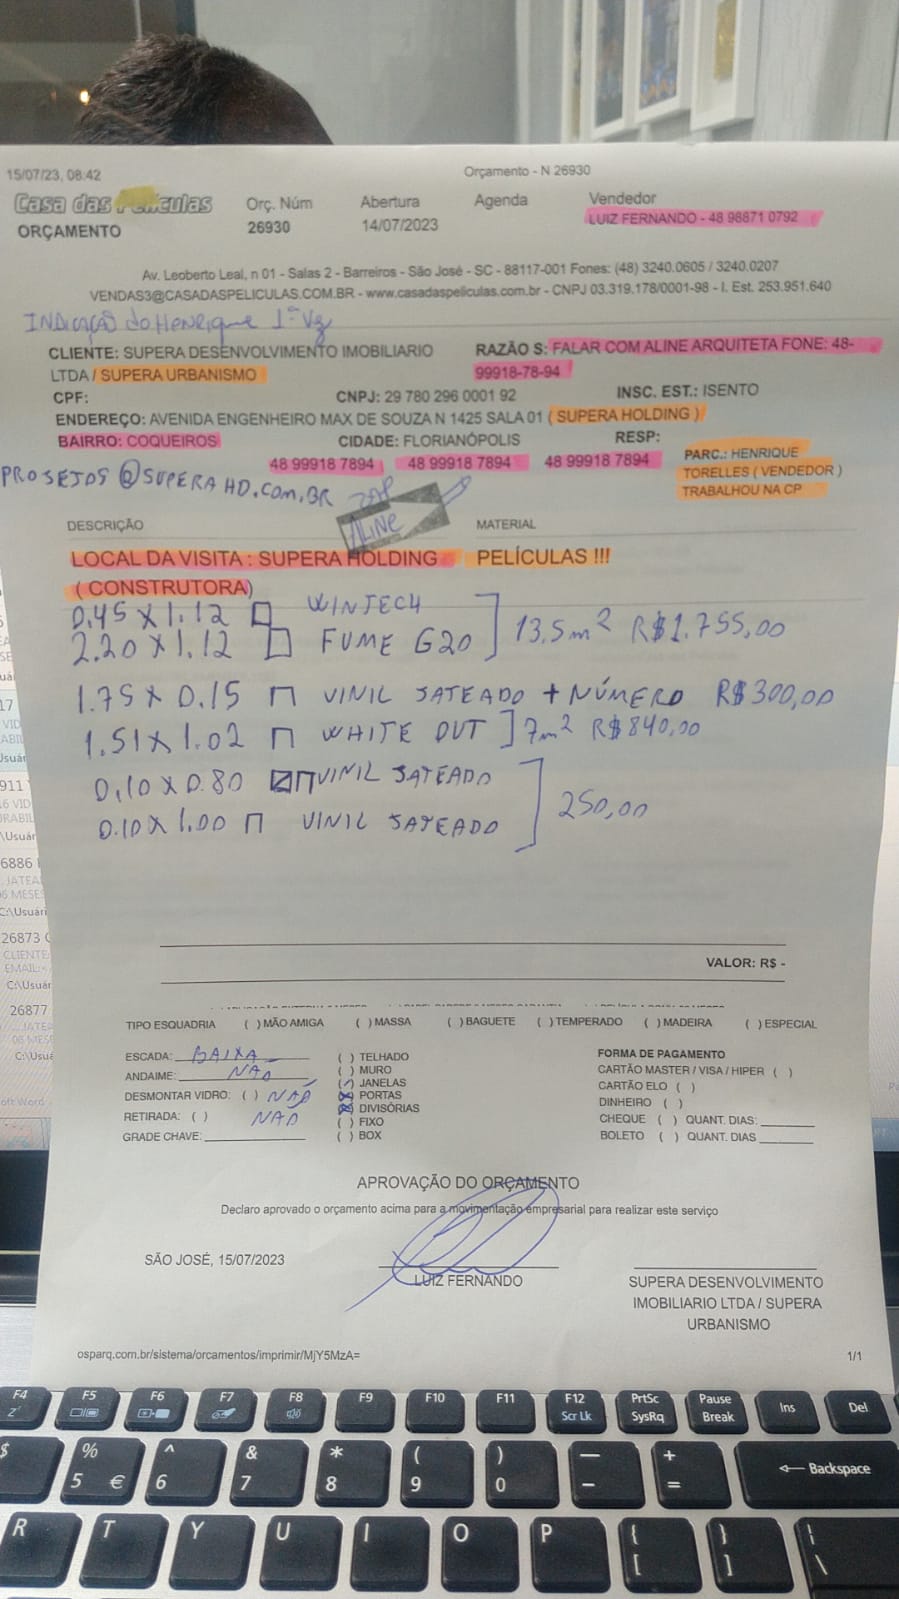 15/07/23, 08:42
Orçamento - N 26930
Casa das Películas
ORÇAMENTO
Orç. Núm
26930
Abertura
14/07/2023
Agenda
Vendedor
LUIZ FERNANDO - 48 98871 0792
Av. Leoberto Leal, n 01 - Salas 2 - Barreiros - São José - SC - 88117-001 Fones: (48) 3240.0605 / 3240.0207
VENDAS3@CASADASPELICULAS.COM.BR - www.casadaspeliculas.com.br - CNPJ 03.319.178/0001-98 - I. Est. 253.951.640
INDICAÇÃO do HENRIQUE 1ª Vz
CLIENTE: SUPERA DESENVOLVIMENTO IMOBILIARIO
LTDA / SUPERA URBANISMO
RAZÃO S: FALAR COM ALINE ARQUITETA FONE: 48-
99918-78-94
CPF:
CNPJ: 29 780 296 0001 92
INSC. EST.: ISENTO
ENDEREÇO: AVENIDA ENGENHEIRO MAX DE SOUZA N 1425 SALA 01 ( SUPERA HOLDING )
BAIRRO: COQUEIROS
CIDADE: FLORIANÓPOLIS
RESP:
48 99918 7894
48 99918 7894
48 99918 7894
PARC.: HENRIQUE
TORELLES ( VENDEDOR )
TRABALHOU NA CP
PROJETOS @SUPERAHD.COM.BR
ZAP
ALINE
DESCRIÇÃO
MATERIAL
LOCAL DA VISITA : SUPERA HOLDING
( CONSTRUTORA)
PELÍCULAS !!!
0,45 X 1.12 WINTECH
2.20 X 1.12 FUME G20 13,5m² R$1.755,00
1.75 X 0.15 VINIL JATEADO + NÚMERO R$300,00
1.51 X 1.02 WHITE OUT 7m² R$840,00
0,10 X 0.80 VINIL JATEADO
0.10 X 1.00 VINIL JATEADO 250,00
VALOR: R$ -
TIPO ESQUADRIA ( ) MÃO AMIGA ( ) MASSA ( ) BAGUETE ( ) TEMPERADO ( ) MADEIRA ( ) ESPECIAL
ESCADA: BAIXA
ANDAIME: NÃO
DESMONTAR VIDRO: ( ) NÃO
RETIRADA: ( ) NÃO
GRADE CHAVE:
( ) TELHADO
( ) MURO
( ) JANELAS
(X) PORTAS
(X) DIVISÓRIAS
( ) FIXO
( ) BOX
FORMA DE PAGAMENTO
CARTÃO MASTER / VISA / HIPER ( )
CARTÃO ELO ( )
DINHEIRO ( )
CHEQUE ( ) QUANT. DIAS:
BOLETO ( ) QUANT. DIAS
APROVAÇÃO DO ORÇAMENTO
Declaro aprovado o orçamento acima para a movimentação empresarial para realizar este serviço
SÃO JOSÉ, 15/07/2023
LUIZ FERNANDO
SUPERA DESENVOLVIMENTO
IMOBILIARIO LTDA / SUPERA
URBANISMO
osparq.com.br/sistema/orcamentos/imprimir/MjY5MzA=
1/1
F4 F5 F6 F7 F8 F9 F10 F11 F12 PrtSc Pause Ins Del
Scr Lk SysRq Break
$ % ^ & * ( ) — +
5 € 6 7 8 9 0 - = Backspace
R T Y U I O P { [ } ] | \